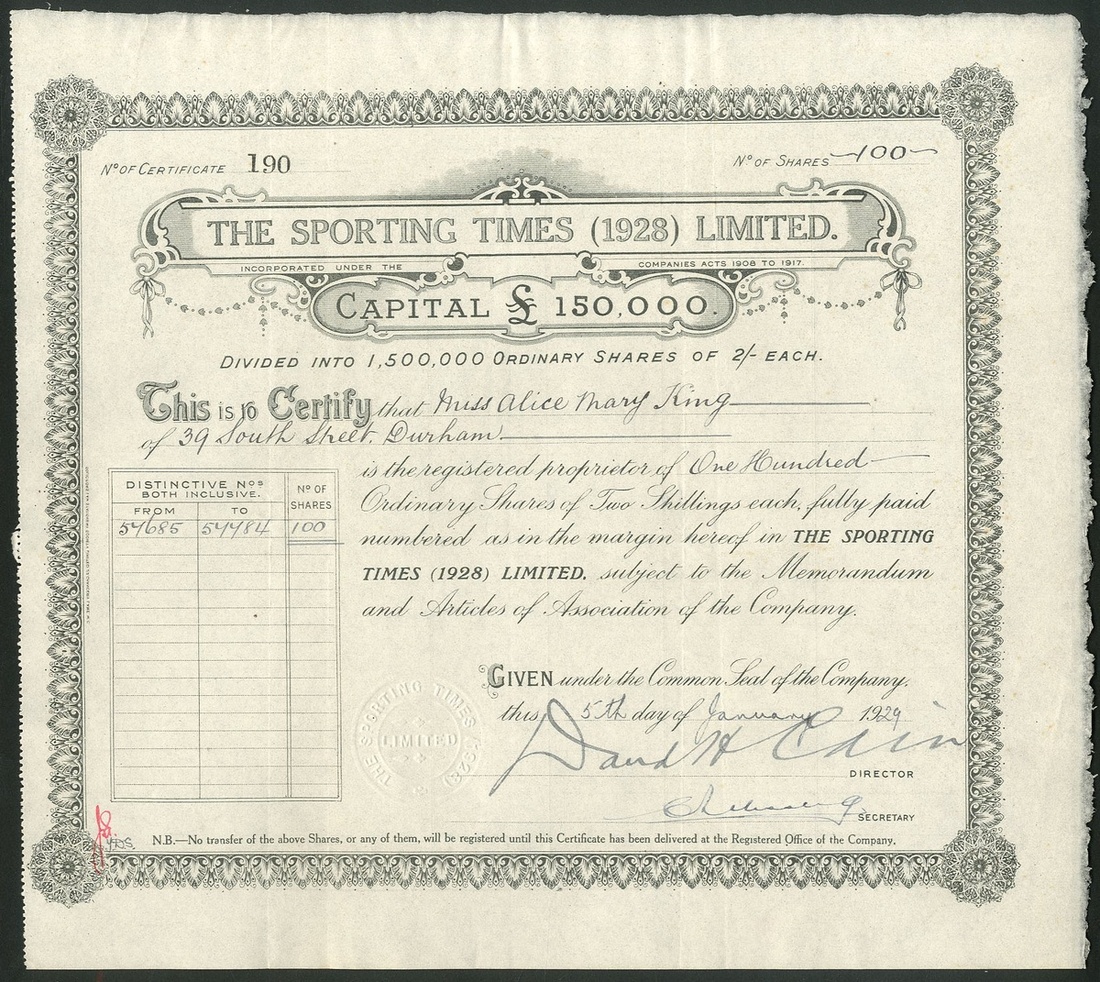 Nº OF CERTIFICATE 190
Nº OF SHARES 100
THE SPORTING TIMES (1928) LIMITED.
INCORPORATED UNDER THE COMPANIES ACTS 1908 TO 1917.
CAPITAL £ 150,000.
DIVIDED INTO 1,500,000 ORDINARY SHARES OF 2/- EACH.
This is to Certify that Miss Alice Mary King
of 39 South Street. Durham
is the registered proprietor of One Hundred
Ordinary Shares of Two Shillings each, fully paid
numbered as in the margin hereof in THE SPORTING
TIMES (1928) LIMITED, subject to the Memorandum
and Articles of Association of the Company.
DISTINCTIVE Nos BOTH INCLUSIVE. Nº OF SHARES
FROM TO
57685 57784 100
GIVEN under the Common Seal of the Company,
this 5th day of January 1929
THE SPORTING TIMES (1928) LIMITED
David H Cain
DIRECTOR
SECRETARY
N.B.—No transfer of the above Shares, or any of them, will be registered until this Certificate has been delivered at the Registered Office of the Company.